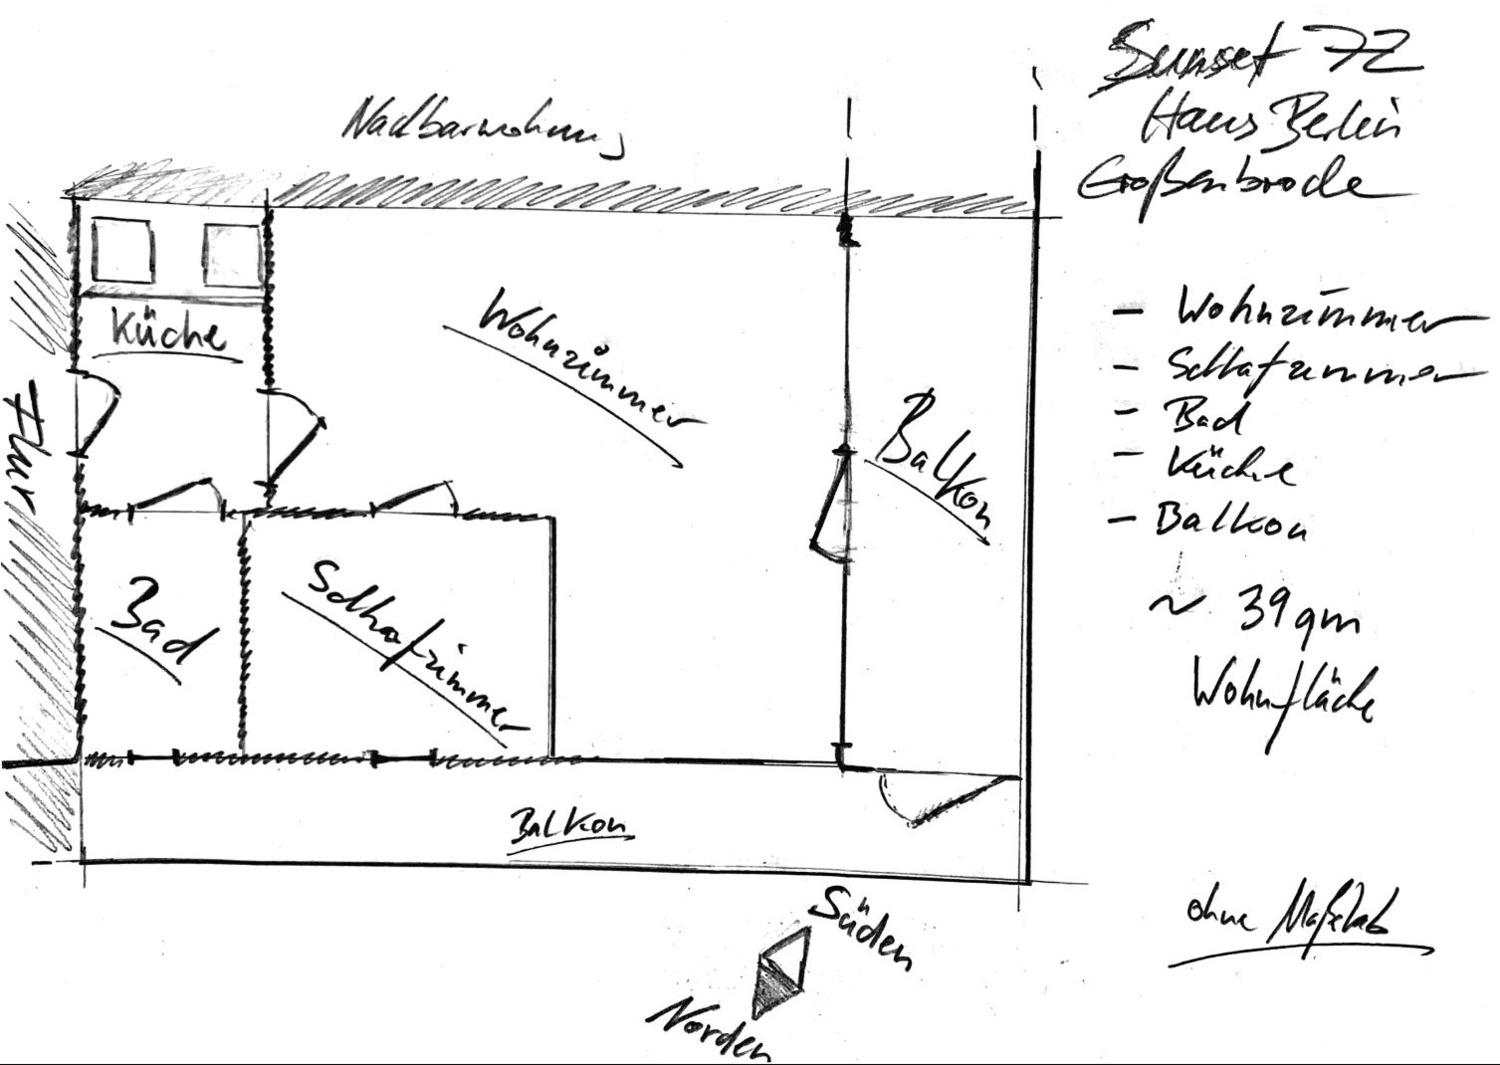 Sunset 72
Haus Berlin
Großenbrode
Nachbarwohnung
Küche
Wohnzimmer
Balkon
Flur
Bad
Schlafzimmer
Balkon
- Wohnzimmer
- Schlafzimmer
- Bad
- Küche
- Balkon
~ 39 qm
Wohnfläche
ohne Maßstab
Süden
Norden